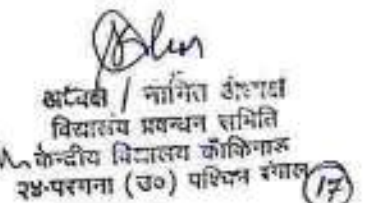 अध्यक्ष / नामित अध्यक्ष
विद्यालय प्रबन्धन समिति
केन्द्रीय विद्यालय काँकिनारा
२४-परगना (उ०) पश्चिम बंगाल
17